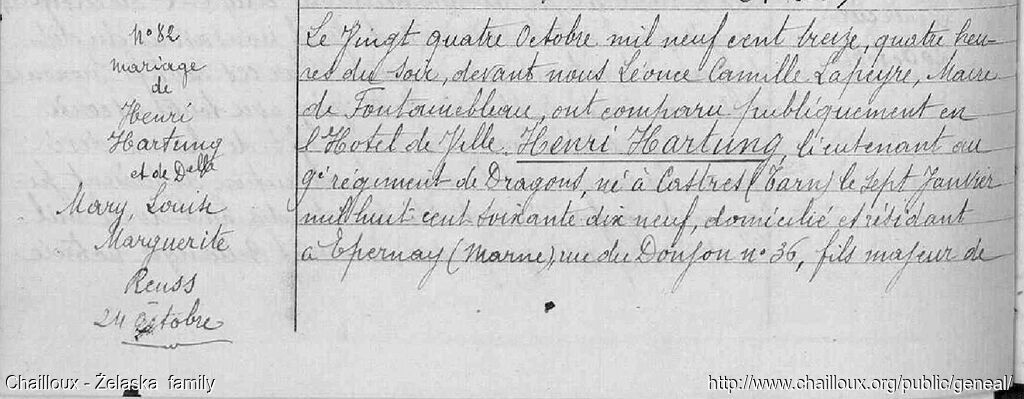 N° 82
mariage
de
Henri
Hartung
et de Della
Mary, Louise
Marguerite
Reuss
24 Octobre
Le Vingt quatre Octobre mil neuf cent treize, quatre heu-
res du soir, devant nous Léonce Camille Lapeyre, Maire
de Fontainebleau, ont comparu publiquement en
l'Hotel de Ville. Henri Hartung, lieutenant au
9e régiment de Dragons, né à Castres (Tarn) le Sept Janvier
mil huit cent soixante dix neuf, domicilié et résidant
à Epernay (Marne), rue du Donjon n° 36, fils majeur de
Chailloux - Želaska family
http://www.chailloux.org/public/geneal/